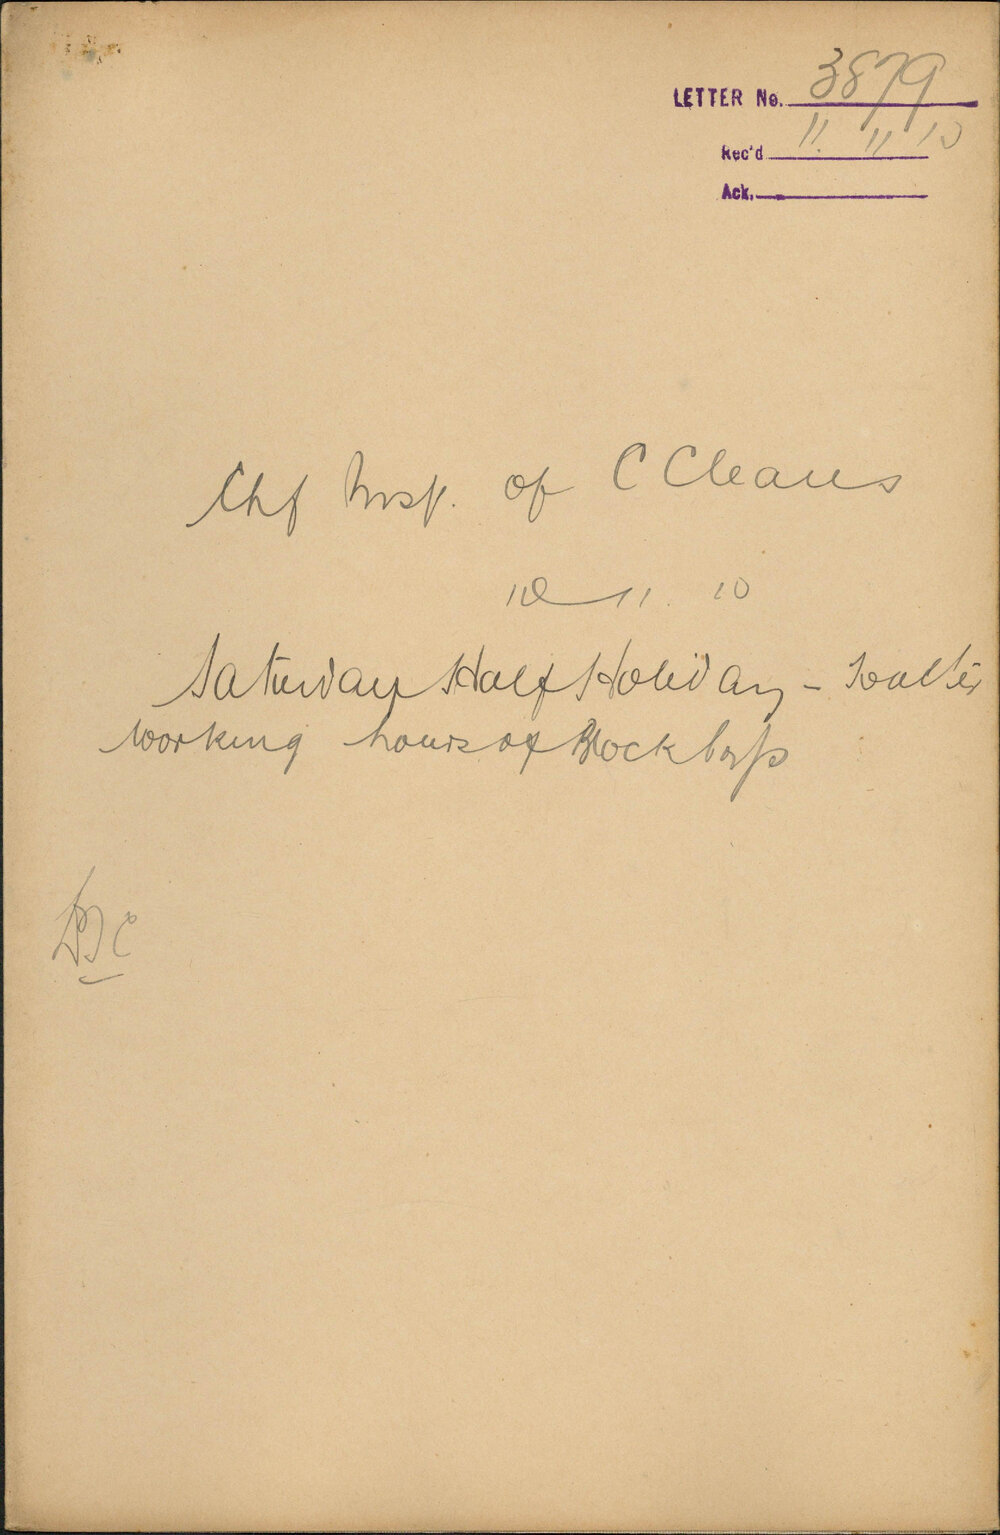 LETTER No. 3879
Rec'd 11 11 10
Ack.
Chf Insp. of C Cleans
10 11. 10
Saturday Half Holiday -
working hours of Block boys